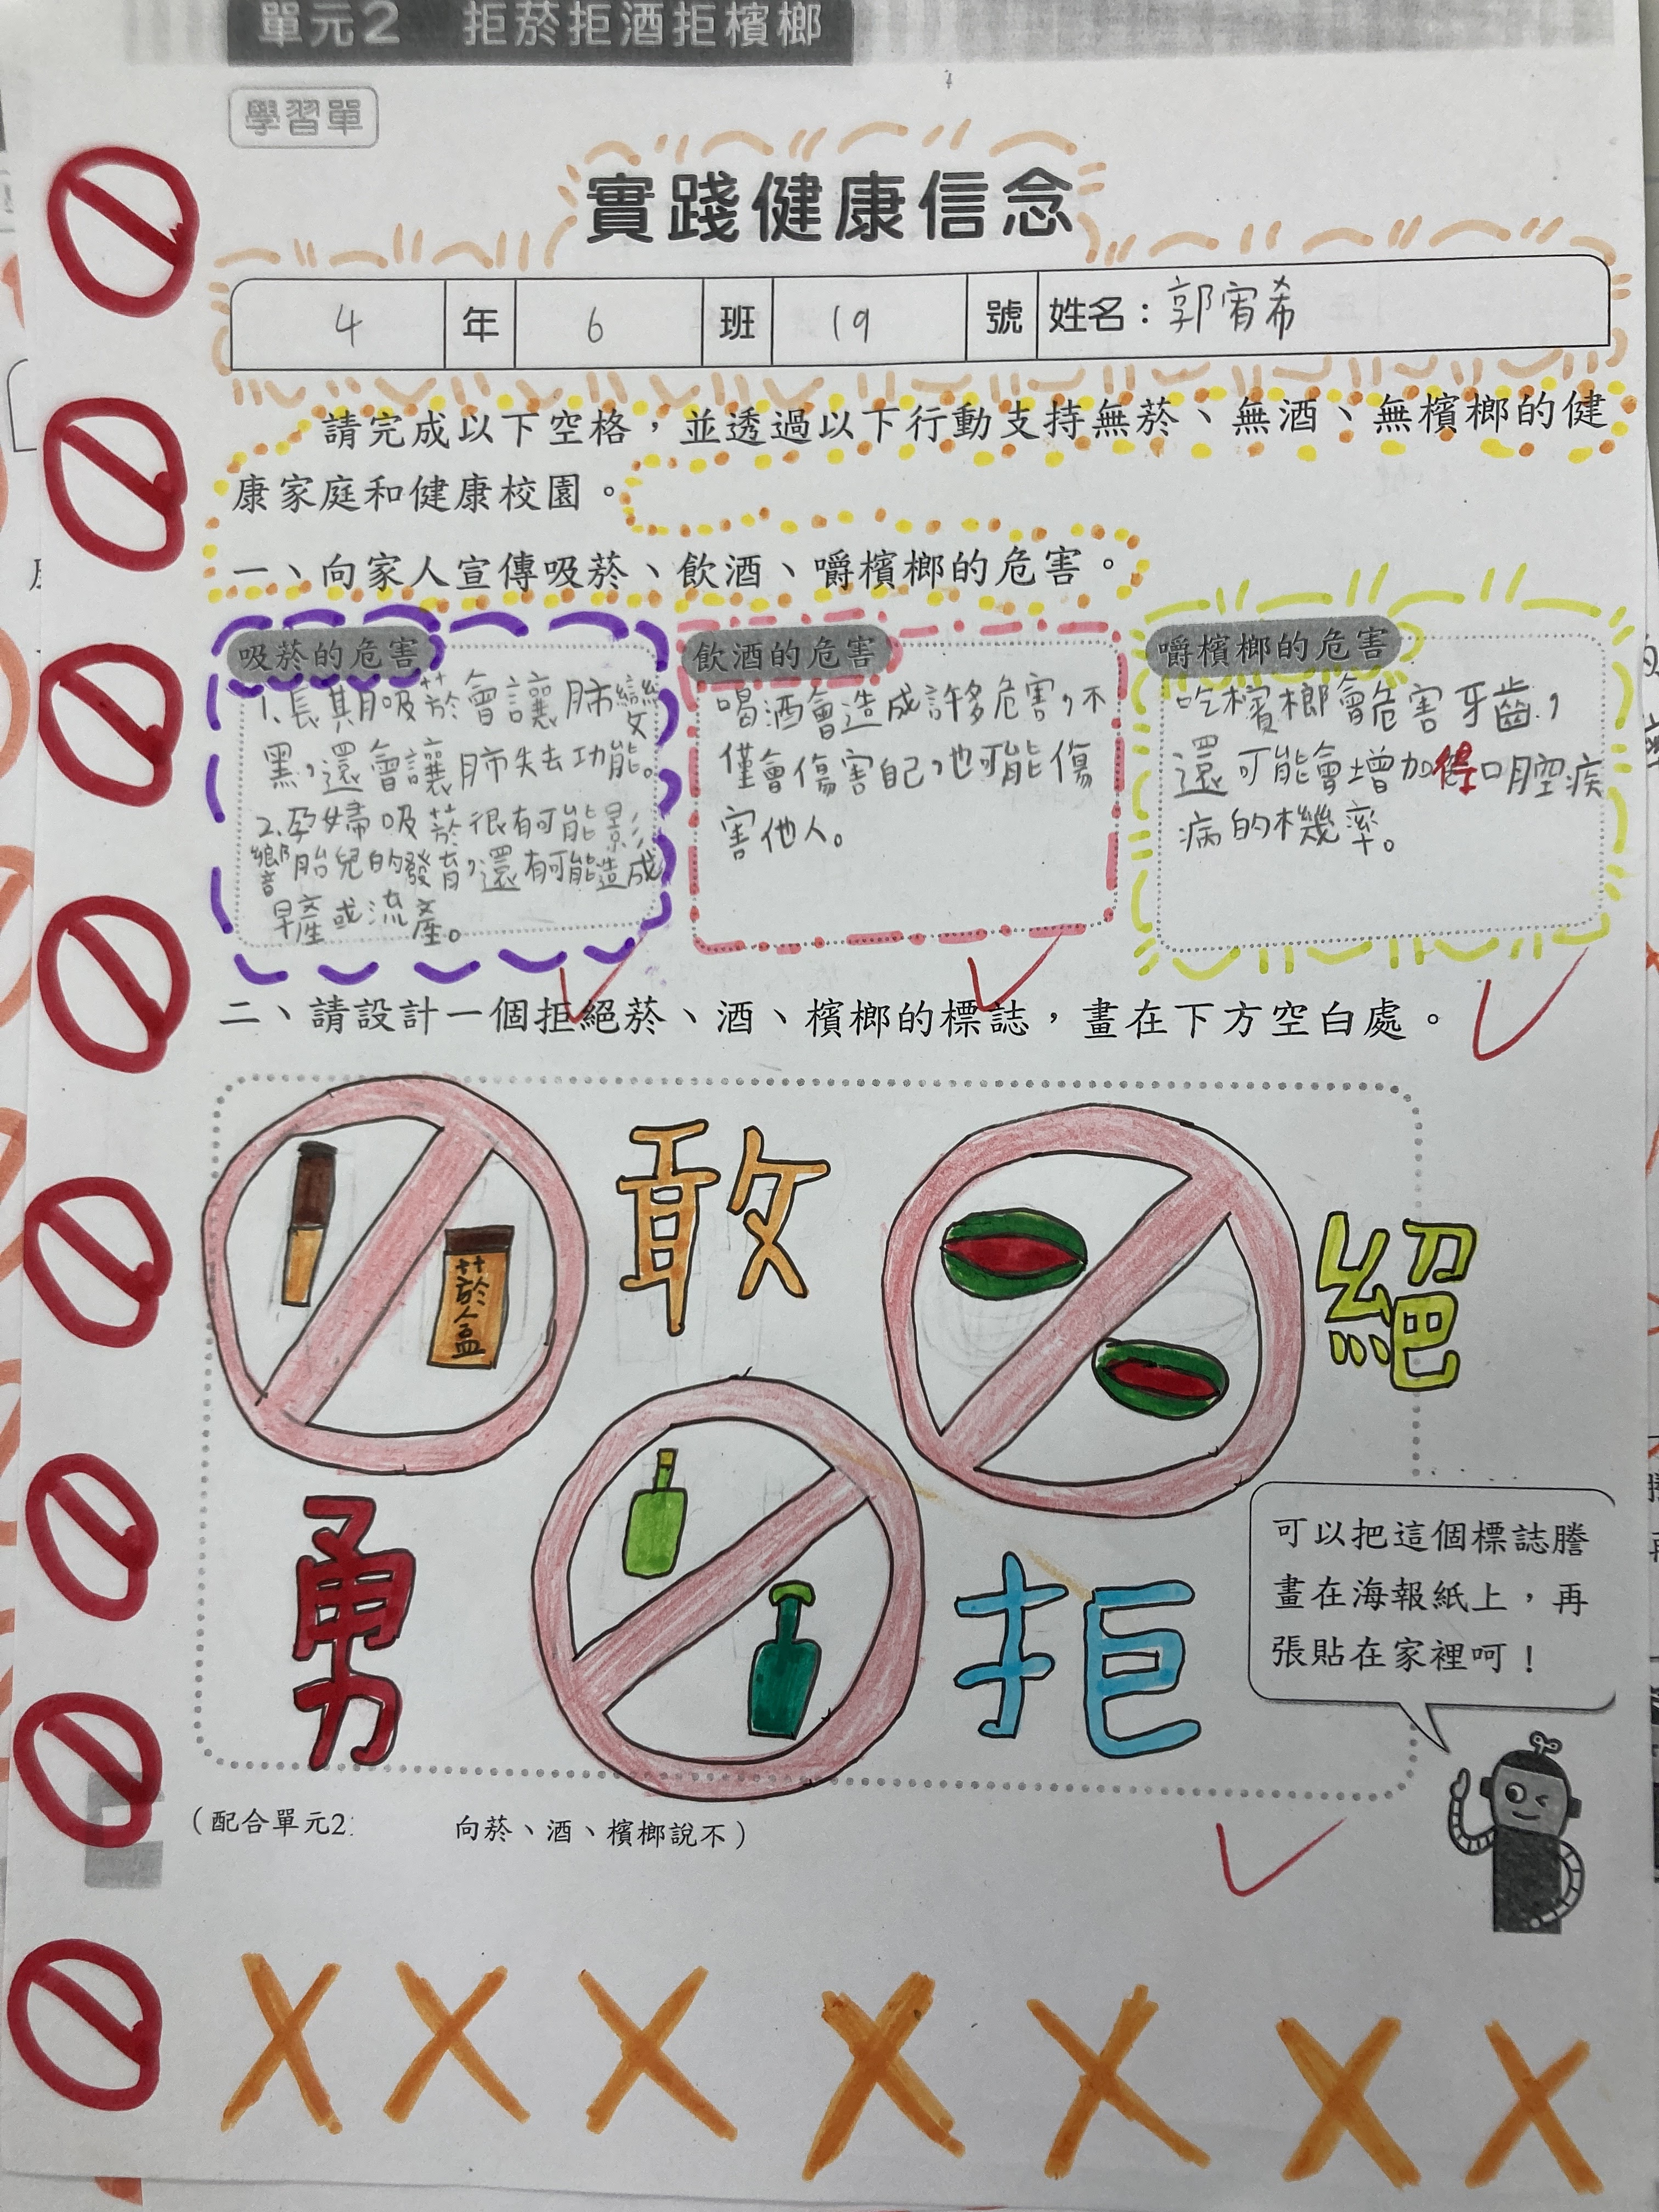 單元2 拒菸拒酒拒檳榔
學習單
實踐健康信念
4 年 6 班 19 號 姓名：郭宥希
請完成以下空格，並透過以下行動支持無菸、無酒、無檳榔的健
康家庭和健康校園。
一、向家人宣傳吸菸、飲酒、嚼檳榔的危害。
吸菸的危害
1.長期吸菸會讓肺變
黑，還會讓肺失去功能。
2.孕婦吸菸很有可能影
響胎兒的發育，還有可能造成
早產或流產。
飲酒的危害
喝酒會造成許多危害，不
僅會傷害自己，也可能傷
害他人。
嚼檳榔的危害
吃檳榔會危害牙齒，
還可能會增加得口腔疾
病的機率。
二、請設計一個拒絕菸、酒、檳榔的標誌，畫在下方空白處。
勇
敢
拒
絕
菸盒
可以把這個標誌謄
畫在海報紙上，再
張貼在家裡呵！
（配合單元2： 向菸、酒、檳榔說不）